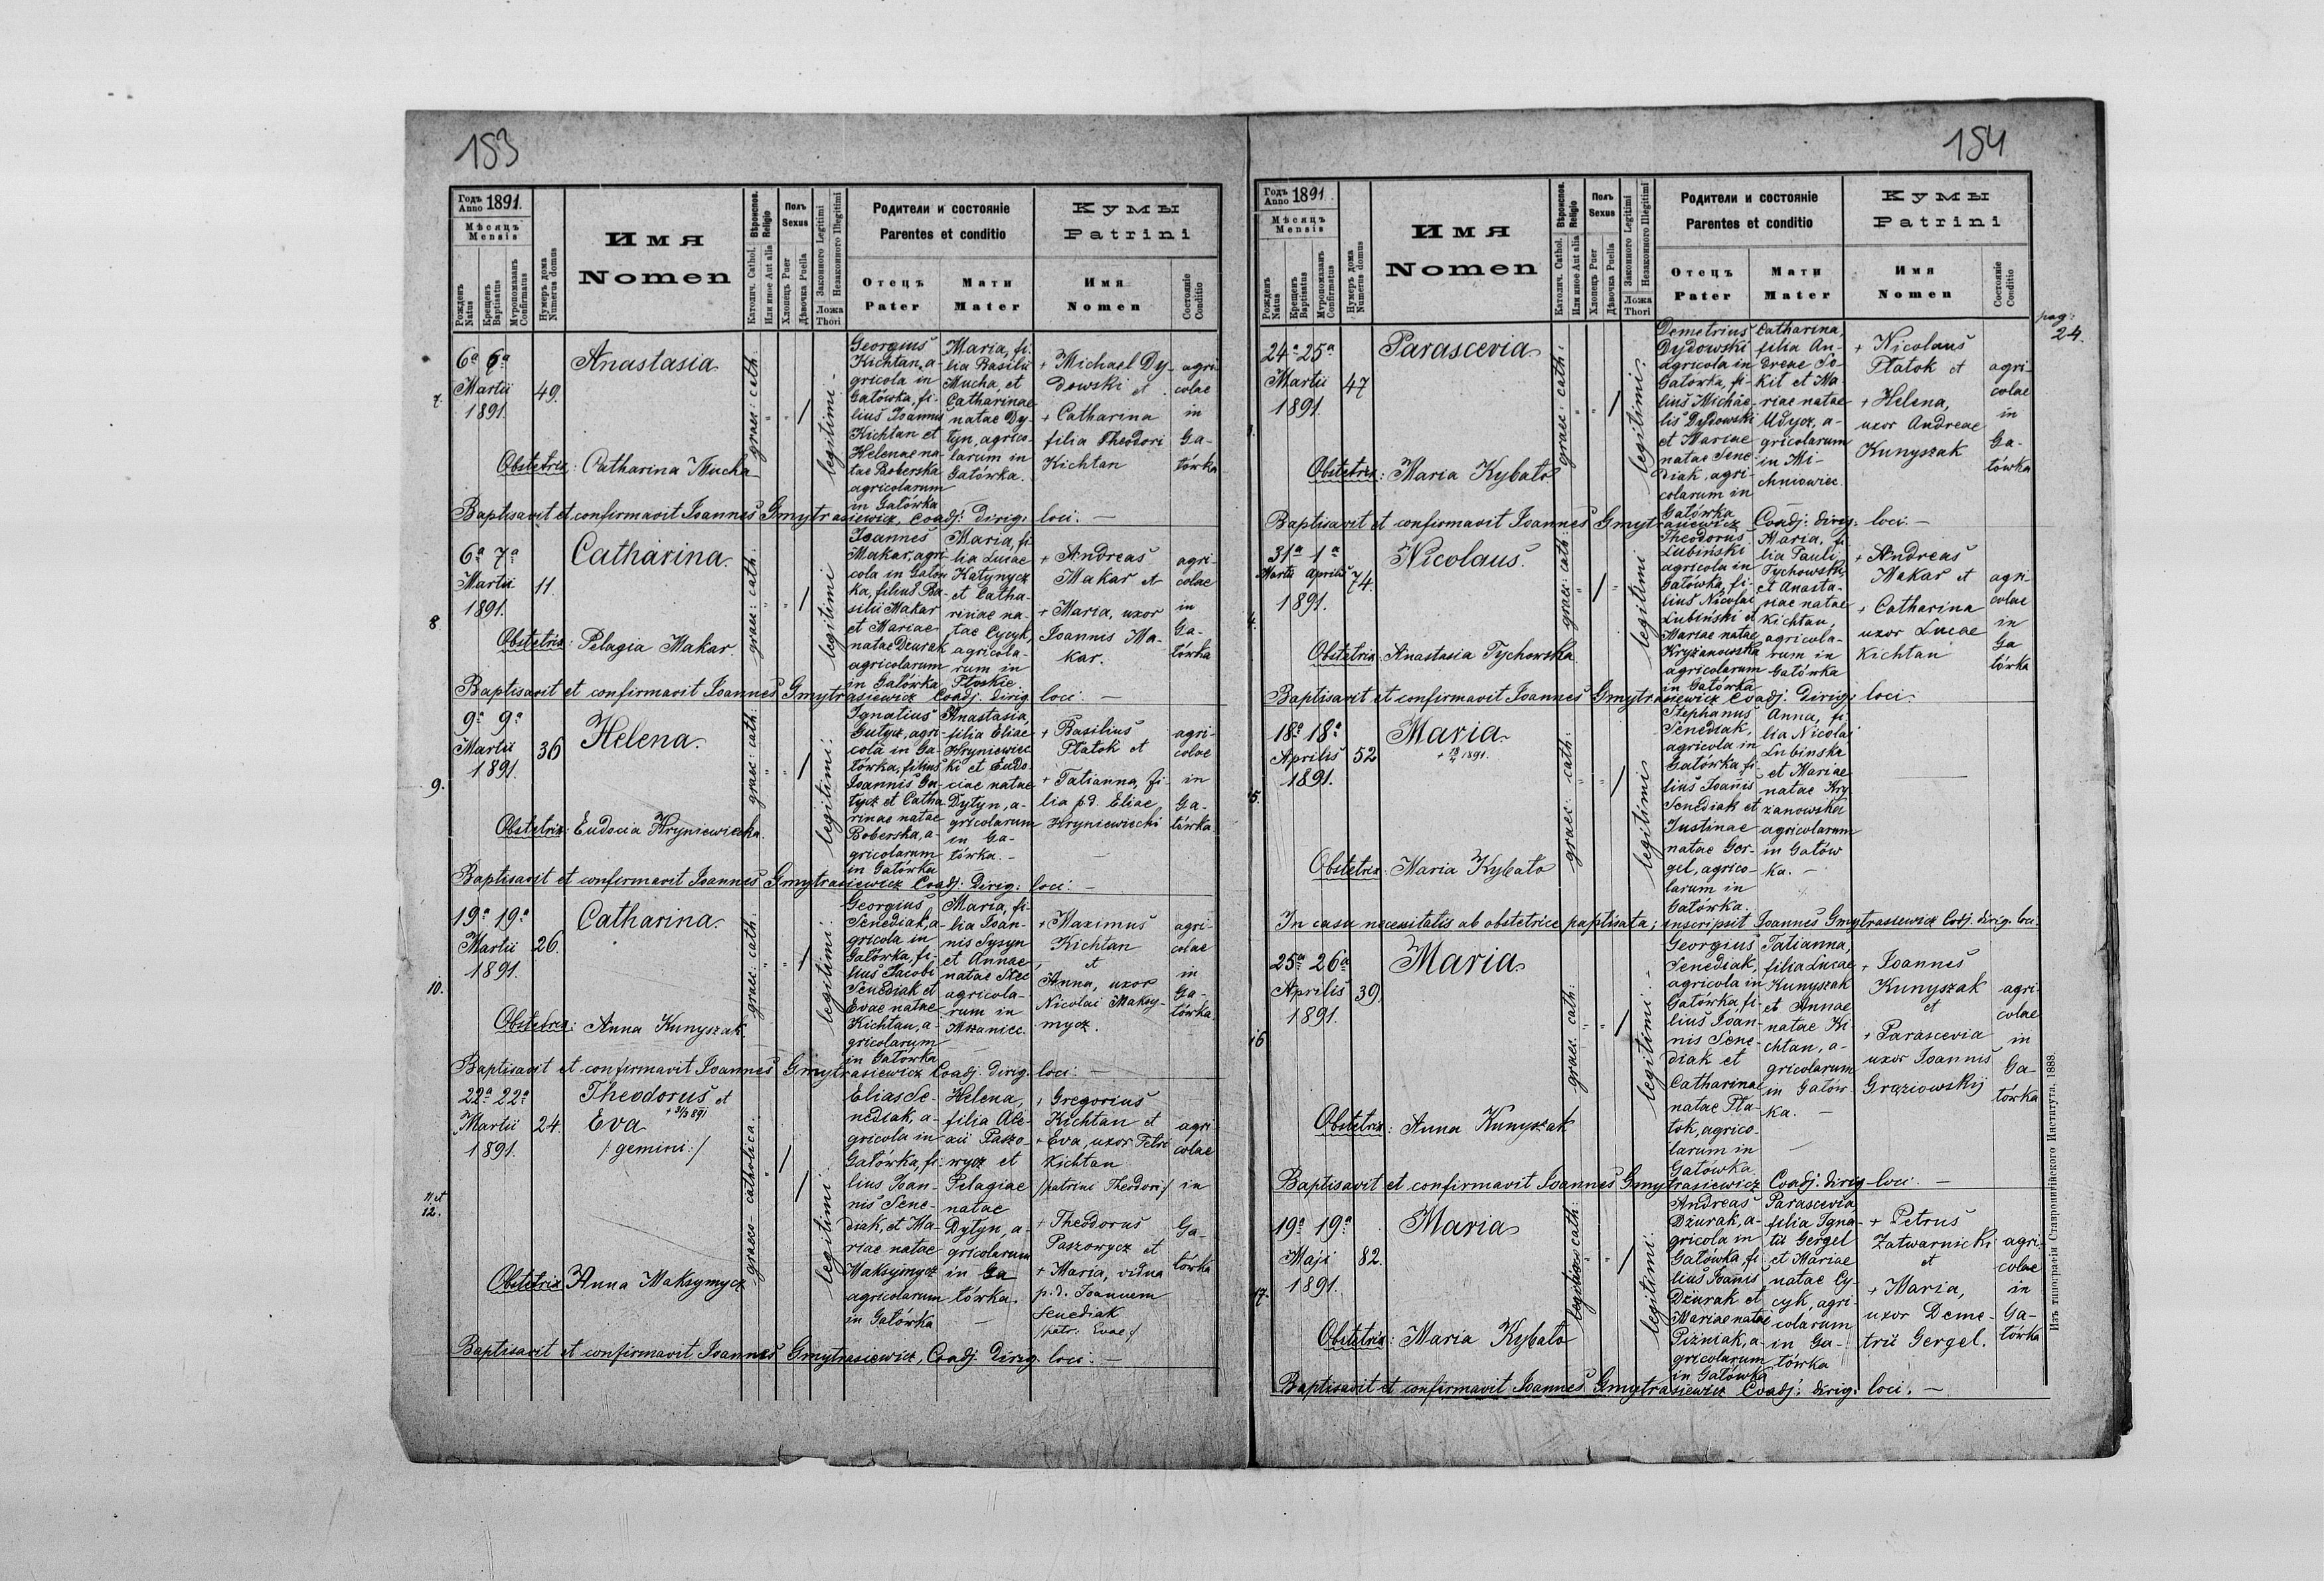 153
Годъ
Anno 1891.
Мѣсяцъ
Mensis
Рожденъ
Natus
Крещенъ
Baptisatus
Мѵропомазанъ
Confirmatus
Нумеръ дома
Numerus domus
Имя
Nomen
Вѣроиспов.
Religio
Католич. Cathol.
Или иное Aut alia
Полъ
Sexus
Хлопецъ Puer
Дѣвочка Puella
Законного Legitimi
Незаконного Illegitimi
Ложа
Thori
Родители и состоянiе
Parentes et conditio
Отецъ
Pater
Мати
Mater
Кумы
Patrini
Имя
Nomen
Состоянiе
Conditio
7.
6a 6a
Martii
1891.
49.
Anastasia
graec: cath:
legitimi
Georgius
Kichtan, a-
gricola in
Gatówka, fi-
lius Joannis
Kichtan et
Helenae na-
tae Boberska
agricolarum
in Gatówka
Maria, fi-
lia Basilii
Mucha, et
Catharinae
natae Dy-
tyn, agrico-
larum in
Gatówka.
+ Michael Dy-
dowski et
+ Catharina
filia Theodori
Kichtan
agri-
colae
in
Ga-
tówka
Obstetrix: Catharina Mucha
Baptisavit et confirmavit Joannes Gmytrasiewicz, Coadj: dirig: loci. —
8.
6a 7a
Martii
1891.
11.
Catharina.
graec: cath:
legitimi
Joannes
Makar, agri-
cola in Gatów
ka, filius Ba-
silii Makar
et Mariae
natae Dzurak
agricolarum
in Gatówka
Maria, fi-
lia Lucae
Katynycz
et Catha-
rinae na-
tae Cycyk,
agricola-
rum in
Ploskie
+ Andreas
Makar et
+ Maria, uxor
Joannis Ma-
kar.
agri-
colae
in
Ga-
tówka
Obstetrix: Pelagia Makar.
Baptisavit et confirmavit Joannes Gmytrasiewicz Coadj: dirig. loci —
9.
9a 9a
Martii
1891.
36
Helena.
graec: cath:
legitimi:
Ignatius
Gutycz, agri-
cola in Ga-
tówka, filius
Joannis Gu-
tycz et Catha
rinae natae
Boberska, a-
gricolarum
in Gatówka
Anastasia,
filia Eliae
Hryniewiec
ki et Eudo
ciae natae
Dytyn, a-
gricolarum
in Ga-
tówka. —
+ Basilius
Ptatok et
+ Tatianna, fi-
lia p.d. Eliae
Hryniewiecki
agri-
colae
in
Ga-
tówka
Obstetrix: Eudocia Hryniewiecka.
Baptisavit et confirmavit Joannes Gmytrasiewicz Coadj: dirig: loci: —
10.
19a 19a
Martii
1891.
26.
Catharina.
graec: cath:
legitimi:
Georgius
Senediak, a-
gricola in
Gatówka, fi-
lius Jacobi
Senediak et
Evae natae
Kichtan, a-
gricolarum
in Gatówka
Maria, fi-
lia Joan-
nis Sysyn
et Annae
natae
agricola-
rum in
Mszaniec.
+ Maximus
Kichtan
et
Anna, uxor
Nicolai Maksy-
mycz.
agri-
colae
in
Ga-
tówka
Obstetrix: Anna Kunyszak.
Baptisavit et confirmavit Joannes Gmytrasiewicz Coadj: dirig. loci: —
11 et
12.
22a 22a
Martii
1891.
24.
Theodorus et
Eva
/: gemini :/
graeco-catholica:
legitimi
Elias Se-
nediak, a-
gricola in
Gatówka, fi-
lius Joan-
nis Sene-
diak, et Ma-
riae natae
Maksymycz
agricolarum
in Gatówka
Helena,
filia Ale-
xii Paszo-
wycz et
Pelagiae
natae
Dytyn, a-
gricolarum
in Ga-
tówka.
+ Gregorius
Kichtan et
+ Eva, uxor Petri
Kichtan
/patrini Theodori:/
+ Theodorus
Paszowycz et
+ Maria, vidua
p.d. Joannem
Senediak
/patr: Evae:/
agri-
colae
in
Ga-
tówka
Obstetrix Anna Maksymycz
Baptisavit et confirmavit Joannes Gmytrasiewicz, Coadj. dirig. loci: —
154
pag:
24.
Годъ
Anno 1891.
Мѣсяцъ
Mensis
Рожденъ
Natus
Крещенъ
Baptisatus
Мѵропомазанъ
Confirmatus
Нумеръ дома
Numerus domus
Имя
Nomen
Вѣроиспов.
Religio
Католич. Cathol.
Или иное Aut alia
Полъ
Sexus
Хлопецъ Puer
Дѣвочка Puella
Законного Legitimi
Незаконного Illegitimi
Ложа
Thori
Родители и состоянiе
Parentes et conditio
Отецъ
Pater
Мати
Mater
Кумы
Patrini
Имя
Nomen
Состоянiе
Conditio
24a 25a
Martii
1891.
47
Parascevia
graec: cath:
legitimi:
Demetrius
Dydowski
agricola in
Gatówka, fi-
lius Michae-
lis Dydowski
et Mariae
natae Sene
diak, agri-
colarum in
Gatówka
Catharina,
filia An-
dreae So-
kit et Ma
riae natae
Udycz, a-
gricolarum
in Mi-
chniowiec.
+ Nicolaus
Ptatok et
+ Helena,
uxor Andreae
Kunyszak
agri-
colae
in
Ga-
tówka
Obstetrix: Maria Kybato
Baptisavit et confirmavit Joannes Gmytrasiewicz Coadj: dirig: loci. —
31a 1a
Martii Aprilis
1891.
74.
Nicolaus.
graec: cath:
legitimi
Theodorus
Lubinski
agricola in
Gatówka, fi-
lius Nicolai
Lubiński et
Mariae natae
Kryżanowska
agricolarum
in Gatówka
Maria, fi
lia Pauli
Tychowski
et Anasta-
siae natae
Kichtan,
agricola-
rum in
Gatówka
+ Andreas
Makar et
+ Catharina
uxor Lucae
Kichtan
agri-
colae
in
Ga
tówka
Obstetrix: Anastasia Tychowska.
Baptisavit et confirmavit Joannes Gmytrasiewicz Coadj: dirig: loci:
18a 18a
Aprilis
1891.
52
Maria
graec: cath:
legitimi
Stephanus
Senediak,
agricola in
Gatówka fi-
lius Joannis
Senediak et
Justinae
natae Ger-
gel, agrico-
larum in
Gatówka.
Anna, fi-
lia Nicolai
Lubinska
et Mariae
natae Kry
zanowska
agricolarum
in Gatów
ka. —
Obstetrix: Maria Kybato
In casu necessitatis ab obstetrice paptisata; inscripsit Joannes Gmytrasiewicz Codj. dirig. loci.
25a 26a
Aprilis
1891.
39.
Maria
graec. cath:
legitimi:
Georgius
Senediak,
agricola in
Gatówka, fi-
lius Joan-
nis Sene-
diak et
Catharinae
natae Pta-
tok, agrico-
larum in
Gatówka
Tatianna,
filia Lucae
Kunyszak
et Annae
natae Ki-
chtan, a-
gricolarum
in Gatów-
ka. —
+ Joannes
Kunyszak
et
+ Parascevia
uxor Joannis
Graziowskij
agri-
colae
in
Ga-
tówka
Obstetrix: Anna Kunyszak
Baptisavit et confirmavit Joannes Gmytrasiewicz Coadj: dirig loci. —
17.
19a 19a
Maji
1891.
82.
Maria
cath:
legitimi:
Andreas
Dżurak, a-
gricola in
Gatówka, fi
lius Joannis
Dżurak et
Mariae natae
Piżniak, a-
gricolarum
in Gatówka
Parascevia
filia Igna-
tii Gergel
et Mariae
natae Cy-
cyk, agri-
colarum
in Ga-
tówka
+ Petrus
Zatwarnicki
et
+ Maria,
uxor Deme-
trii Gergel.
agri-
colae
in
Ga-
tówka
Obstetrix: Maria Kybato
Baptisavit et confirmavit Joannes Gmytrasiewicz Coadj: dirig: loci. —
Изъ типографiи Ставропигiйского Института. 1888.